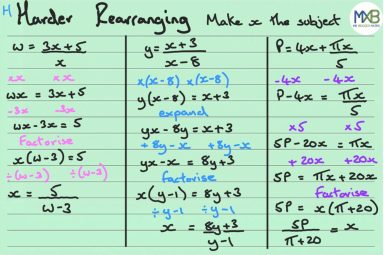 H Harder Rearranging Make x the subject
MXB
w = 3x+5
x
×x ×x
wx = 3x+5
-3x -3x
wx-3x = 5
Factorise
x(w-3) = 5
÷(w-3) ÷(w-3)
x = 5
w-3
y = x+3
x-8
×(x-8) ×(x-8)
y(x-8) = x+3
expand
yx-8y = x+3
+8y-x +8y-x
yx-x = 8y+3
factorise
x(y-1) = 8y+3
÷y-1 ÷y-1
x = 8y+3
y-1
P = 4x + πx
5
-4x -4x
P-4x = πx
5
×5 ×5
5P-20x = πx
+20x +20x
5P = πx+20x
Factorise
5P = x(π+20)
5P = x
π+20